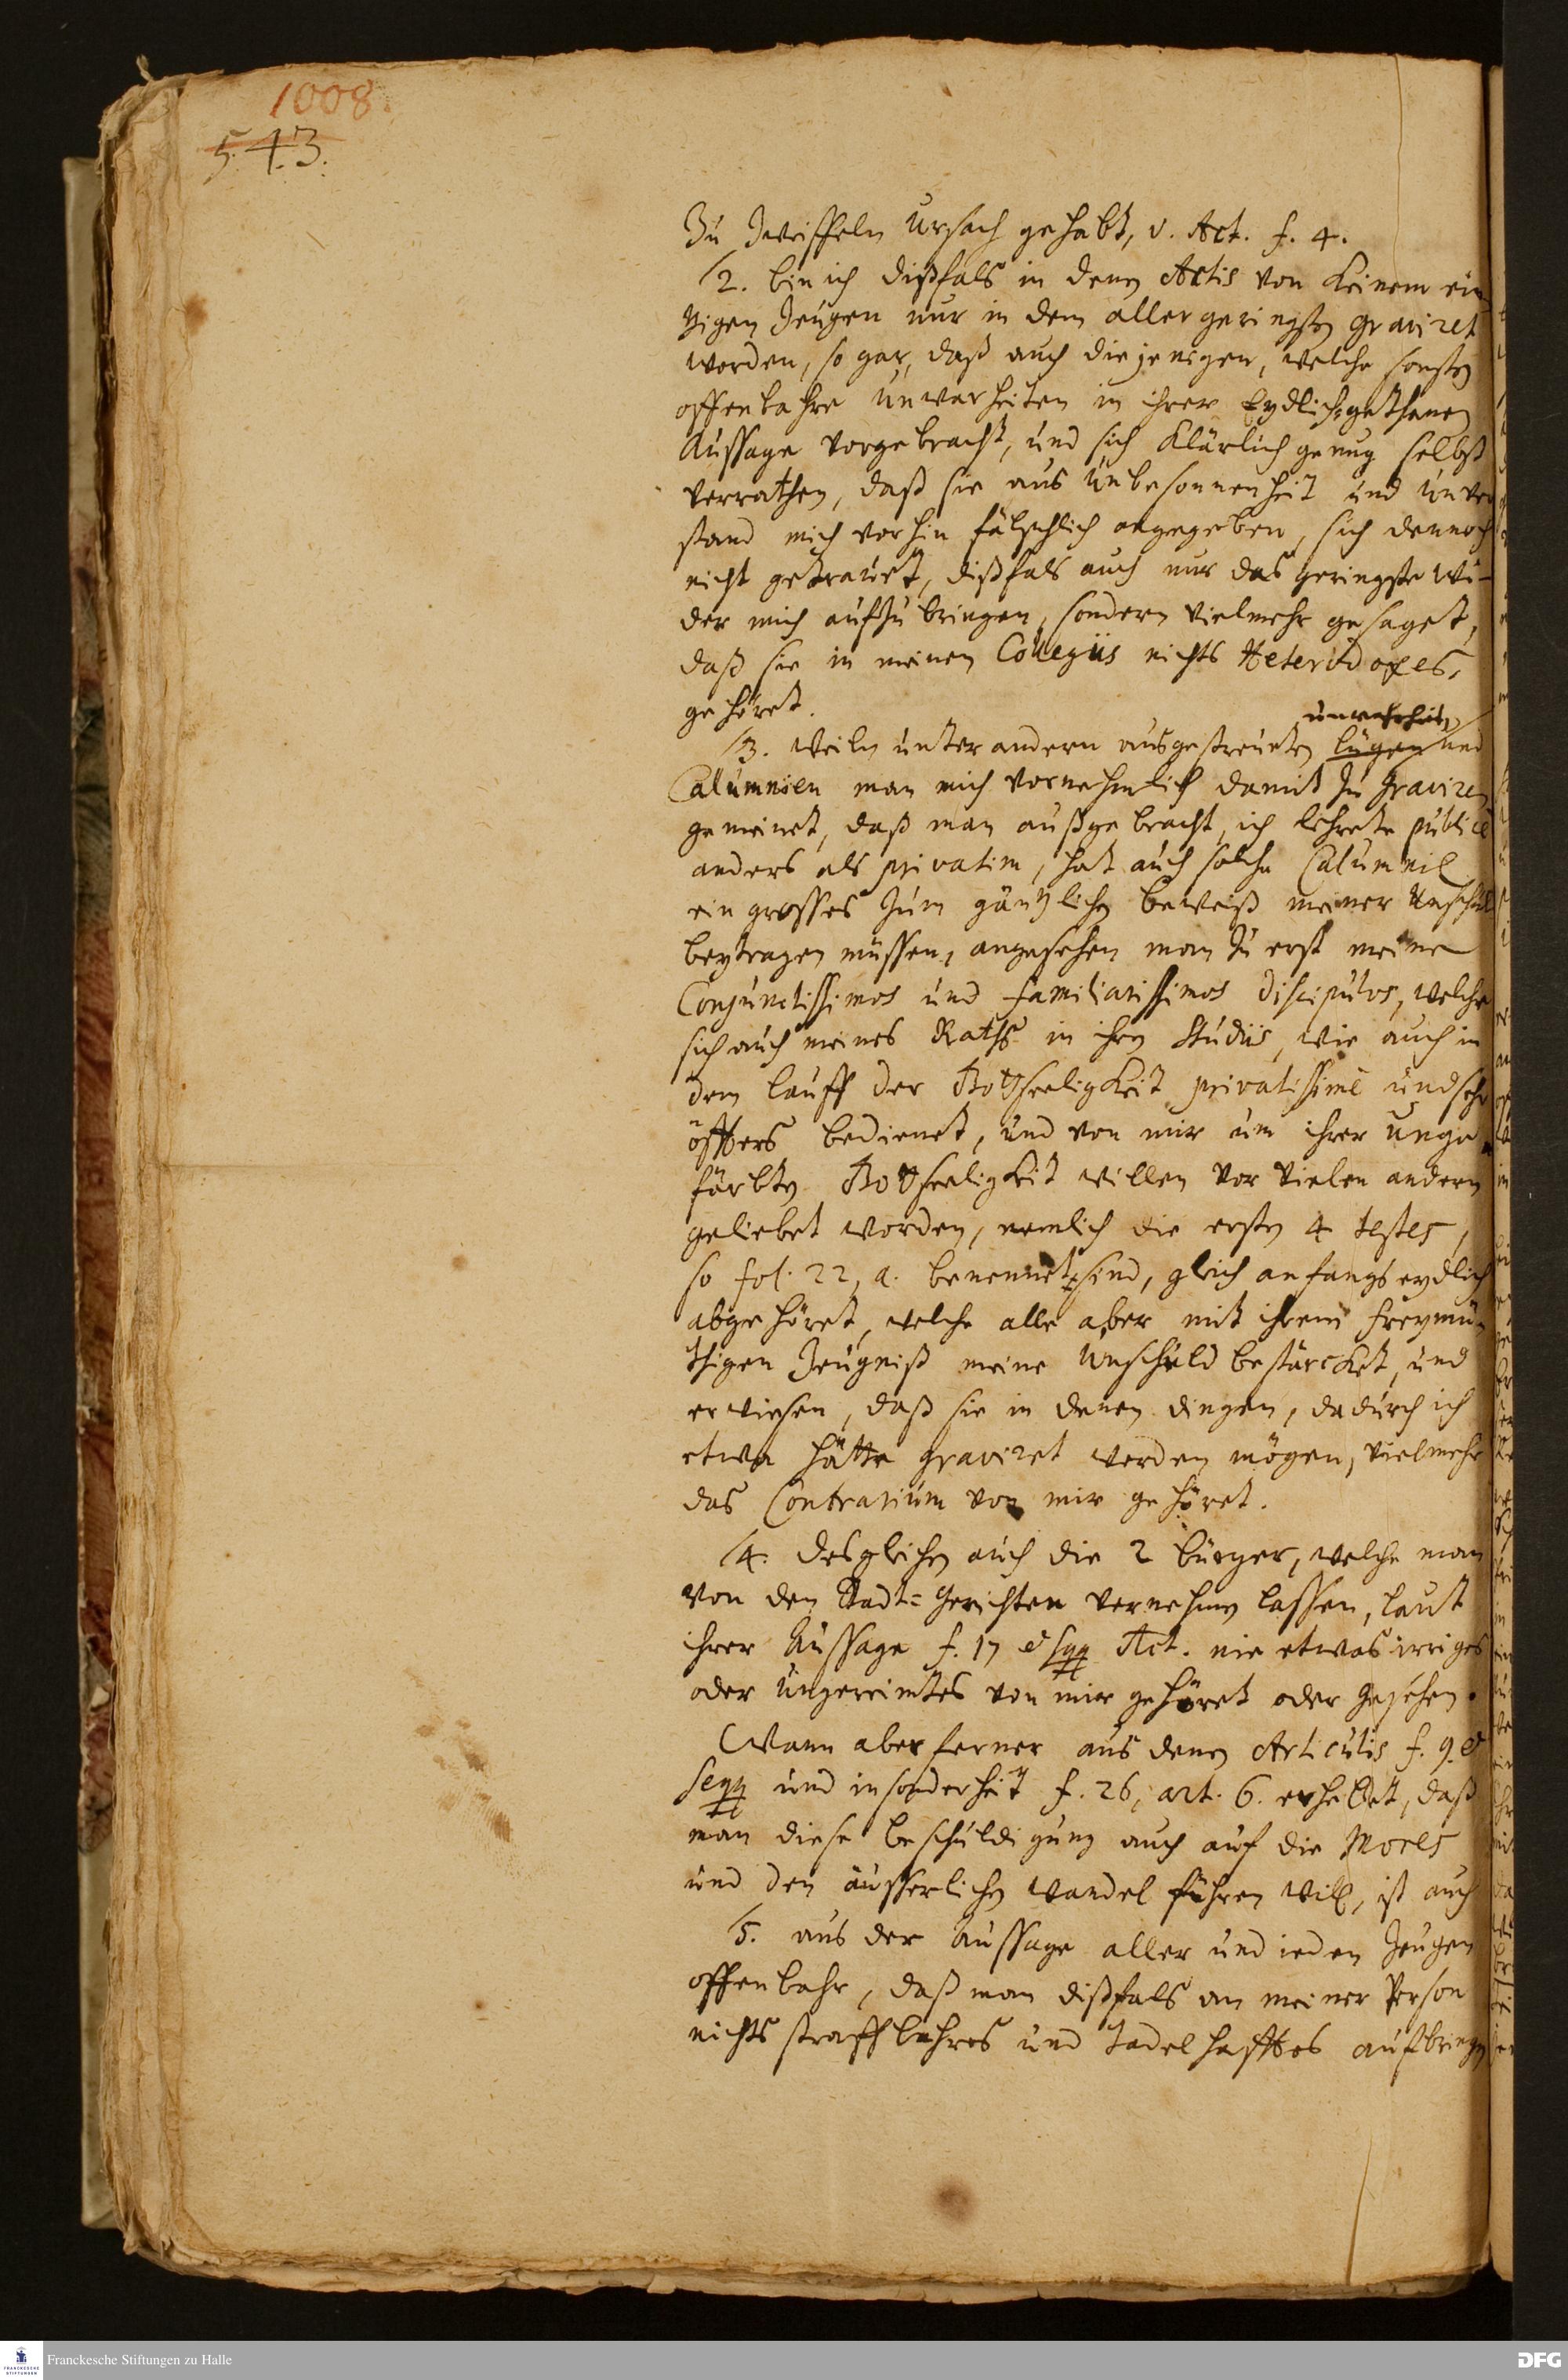 1008.
543.
zu zweiffeln ursach gehabt, v. Act. f. 4.
2. bin ich dißfals in denen Actis von keinem ein
tzigen Zeugen nur in dem allergeringsten graviret
worden, so gar, daß auch diejenigen, welche sonsten
offenbahre unwarheiten in ihrer Eydlich-gethanen
Aussage vorgebracht, und sich klärlich genug selbst
verrathen, daß sie aus unbesonnenheit und unver
stand mich vorhin fälschlich angegeben, sich dennoch
nicht getrauet, dißfals auch nur das geringste wi-
der mich aufzubringen, sondern vielmehr gesaget,
daß sie in meinen Collegiis nichts Heterodoxes,
gehöret.
unwahrheiten
3. Weiln unter andern ausgestreueten lügen und
Calumnien man mich vornehmlich damit zu graviren
gemeinet, daß man außgebracht, ich lehrete publice
anders als privatim, hat auch solche Calumnie
ein grosses zum gäntzlichen beweiß meiner Unschuld
beytragen müssen, angesehen man zu erst meine
Conjunctissimos und familiarissimos discipulos, welche
sich auch meines Raths in ihren Studiis, wie auch in
dem lauff der Gottseeligkeit privatissime und sehr
öffters bedienet, und von mir um ihrer unge
färbten Gottseeligkeit willen vor vielen andern
geliebet worden, nemlich die ersten 4 testes,
so fol. 22, a. benennet sind, gleich anfangs eydlich
abgehöret, welche alle aber mit ihrem freymü
thigen Zeugniß meine Unschuld bestärcket, und
erwiesen, daß sie in denen dingen, dadurch ich
etwa hätte graviret werden mögen, vielmehr
das Contrarium von mir gehöret.
4. desgleichen auch die 2 bürger, welche man
von den Stadt-Gerichten vernehmen lassen, laut
ihrer Aussage f. 17 & sqq Act. nie etwas irriges
oder ungereimtes von mir gehöret oder gesehen.
Wann aber ferner aus denen Articulis f. 9. &
seqq und insonderheit f. 26, art. 6. erhellet, daß
man diese beschuldigung auch auf die Mores
und den äusserlichen wandel führen will, ist auch
5. aus der Aussage aller und ieden Zeugen
offenbahr, daß man dißfals an meiner Person
nichts straffbahres und tadelhafftes aufbringen
Franckesche Stiftungen zu Halle
DFG